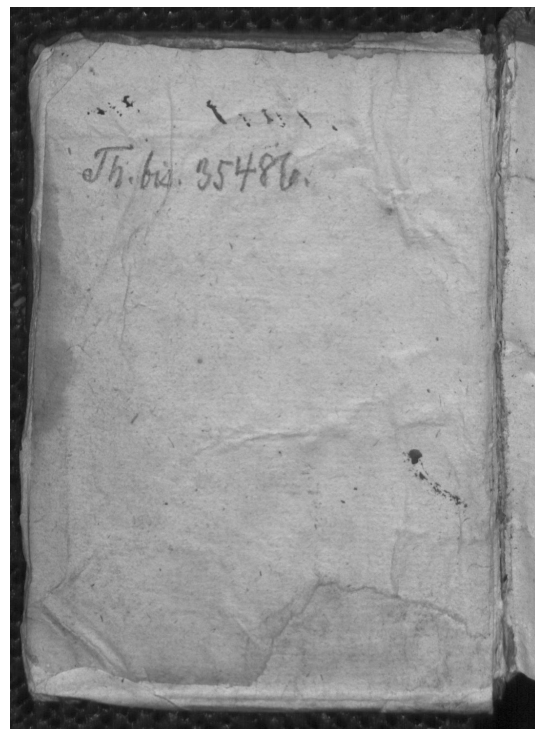 Th. bis. 35486.